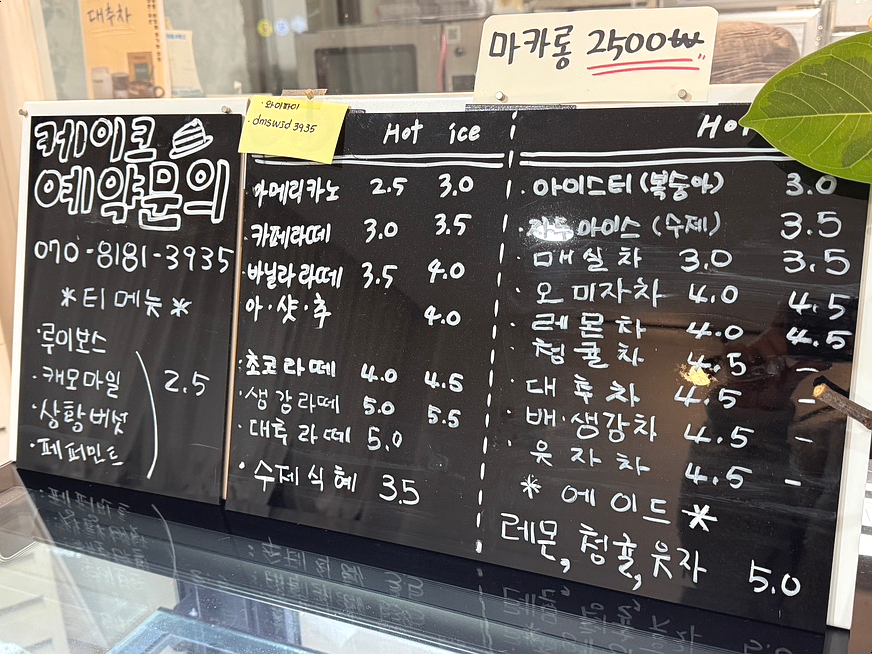 대추차
마카롱 2500₩
· 와이파이
· dmswid3935
케이크
예약문의
070-8181-3935
*티 메뉴*
· 루이보스
· 캐모마일 2.5
· 상황버섯
· 페퍼민트
Hot ice
아메리카노 2.5 3.0
· 카페라떼 3.0 3.5
· 바닐라 라떼 3.5 4.0
아·샷·추 4.0
· 초코 라떼 4.0 4.5
· 생강라떼 5.0 5.5
· 대추 라떼 5.0
· 수제 식혜 3.5
Hot
· 아이스티 (복숭아) 3.0
아이스 (수제) 3.5
· 매실차 3.0 3.5
· 오미자차 4.0 4.5
· 레몬차 4.0 4.5
· 청귤차 4.5 -
· 대추차 4.5 -
· 배·생강차 4.5 -
· 유자차 4.5 -
* 에이드 *
레몬, 청귤, 유자 5.0